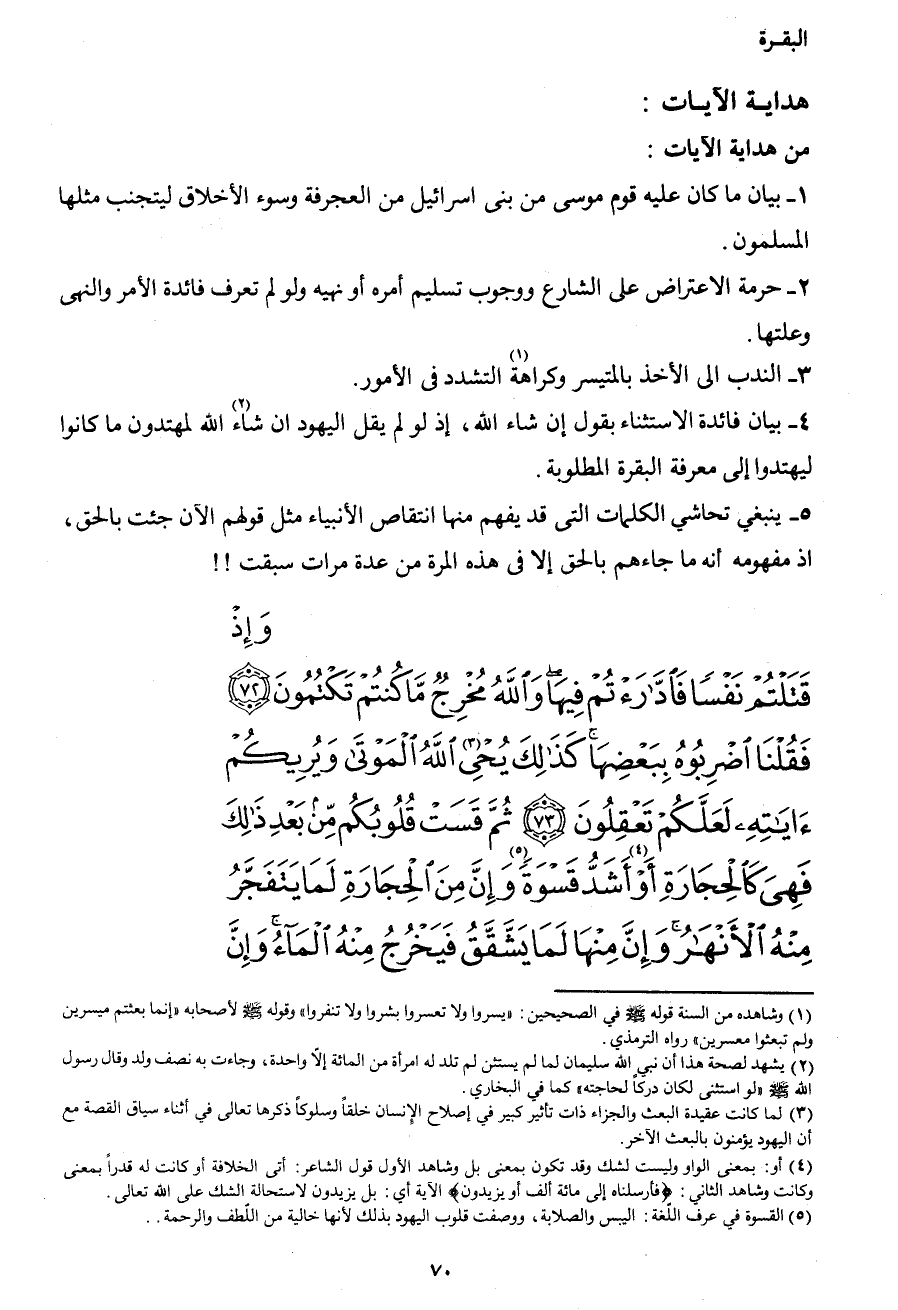 البقـرة
هدايـة الآيـات :
من هداية الآيات :
١ـ بيان ما كان عليه قوم موسى من بنى اسرائيل من العجرفة وسوء الأخلاق ليتجنب مثلها
المسلمون .
٢ـ حرمة الاعتراض على الشارع ووجوب تسليم أمره أو نهيه ولو لم تعرف فائدة الأمر والنهى
وعلتها .
٣ـ الندب الى الأخذ بالمتيسر وكراهة(١) التشدد فى الأمور.
٤ـ بيان فائدة الاستثناء بقول إن شاء الله ، إذ لو لم يقل اليهود ان شاء(٢) الله لمهتدون ما كانوا
ليهتدوا إلى معرفة البقرة المطلوبة .
٥ـ ينبغي تحاشي الكلمات التى قد يفهم منها انتقاص الأنبياء مثل قولهم الآن جئت بالحق ،
اذ مفهومه أنه ما جاءهم بالحق إلا فى هذه المرة من عدة مرات سبقت !!
وَإِذْ
قَتَلْتُمْ نَفْسًا فَادَّارَءْتُمْ فِيهَا ۖ وَاللَّهُ مُخْرِجٌ مَّا كُنتُمْ تَكْتُمُونَ ﴿٧٢﴾
فَقُلْنَا اضْرِبُوهُ بِبَعْضِهَا ۚ كَذَٰلِكَ يُحْيِ(٣) اللَّهُ الْمَوْتَىٰ وَيُرِيكُمْ
ءَايَـٰتِهِۦ لَعَلَّكُمْ تَعْقِلُونَ ﴿٧٣﴾ ثُمَّ قَسَتْ قُلُوبُكُم مِّنۢ بَعْدِ ذَٰلِكَ
فَهِىَ كَالْحِجَارَةِ أَوْ(٤) أَشَدُّ قَسْوَةً(٥) ۚ وَإِنَّ مِنَ الْحِجَارَةِ لَمَا يَتَفَجَّرُ
مِنْهُ الْأَنْهَـٰرُ ۚ وَإِنَّ مِنْهَا لَمَا يَشَّقَّقُ فَيَخْرُجُ مِنْهُ الْمَاءُ ۚ وَإِنَّ
(١) وشاهده من السنة قوله ﷺ في الصحيحين : «يسروا ولا تعسروا بشروا ولا تنفروا» وقوله ﷺ لأصحابه «إنما بعثتم ميسرين
ولم تبعثوا معسرين» رواه الترمذي .
(٢) يشهد لصحة هذا أن نبي الله سليمان لما لم يستثن لم تلد له امرأة من المائة إلّا واحدة، وجاءت به نصف ولد وقال رسول
الله ﷺ «لو استثنى لكان دركاً لحاجته» كما في البخاري .
(٣) لما كانت عقيدة البعث والجزاء ذات تأثير كبير في إصلاح الإنسان خلقاً وسلوكاً ذكرها تعالى في أثناء سياق القصة مع
أن اليهود يؤمنون بالبعث الآخر.
(٤) أو: بمعنى الواو وليست لشك وقد تكون بمعنى بل وشاهد الأول قول الشاعر: أتى الخلافة أو كانت له قدراً بمعنى
وكانت وشاهد الثاني : ﴿فأرسلناه إلى مائة ألف أو يزيدون﴾ الآية أي : بل يزيدون لاستحالة الشك على الله تعالى .
(٥) القسوة في عرف اللّغة : اليبس والصلابة، ووصفت قلوب اليهود بذلك لأنها خالية من اللّطف والرحمة . .
٧٠